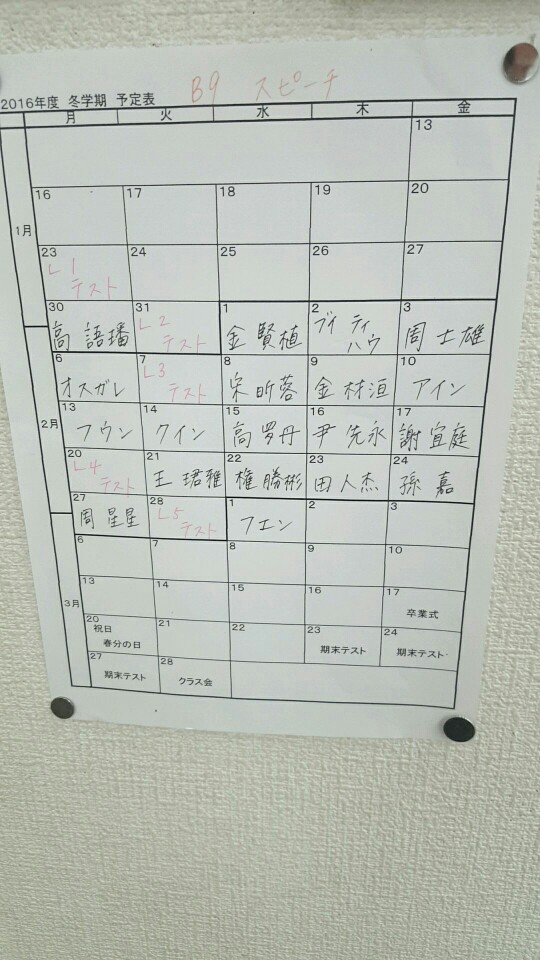 B9 スピーチ
2016年度 冬学期 予定表
月 火 水 木 金
13
1月
16 17 18 19 20
23 24 25 26 27
L1
テスト
30 31 1 2 3
高 語璠 L2 テスト 金 賢植 ブイ ティ ハウ 周 士雄
2月
6 7 8 9 10
オスガレ L3 テスト 宋昕蓉 金材洹 アイン
13 14 15 16 17
フウン クイン 高罗丹 尹先永 謝宜庭
20 21 22 23 24
L4 テスト 王珺雅 権勝彬 田人杰 孫嘉
27 28 1 2 3
周星星 L5 テスト フエン
3月
6 7 8 9 10
13 14 15 16 17
卒業式
20 21 22 23 24
祝日
春分の日 期末テスト 期末テスト
27 28
期末テスト クラス会